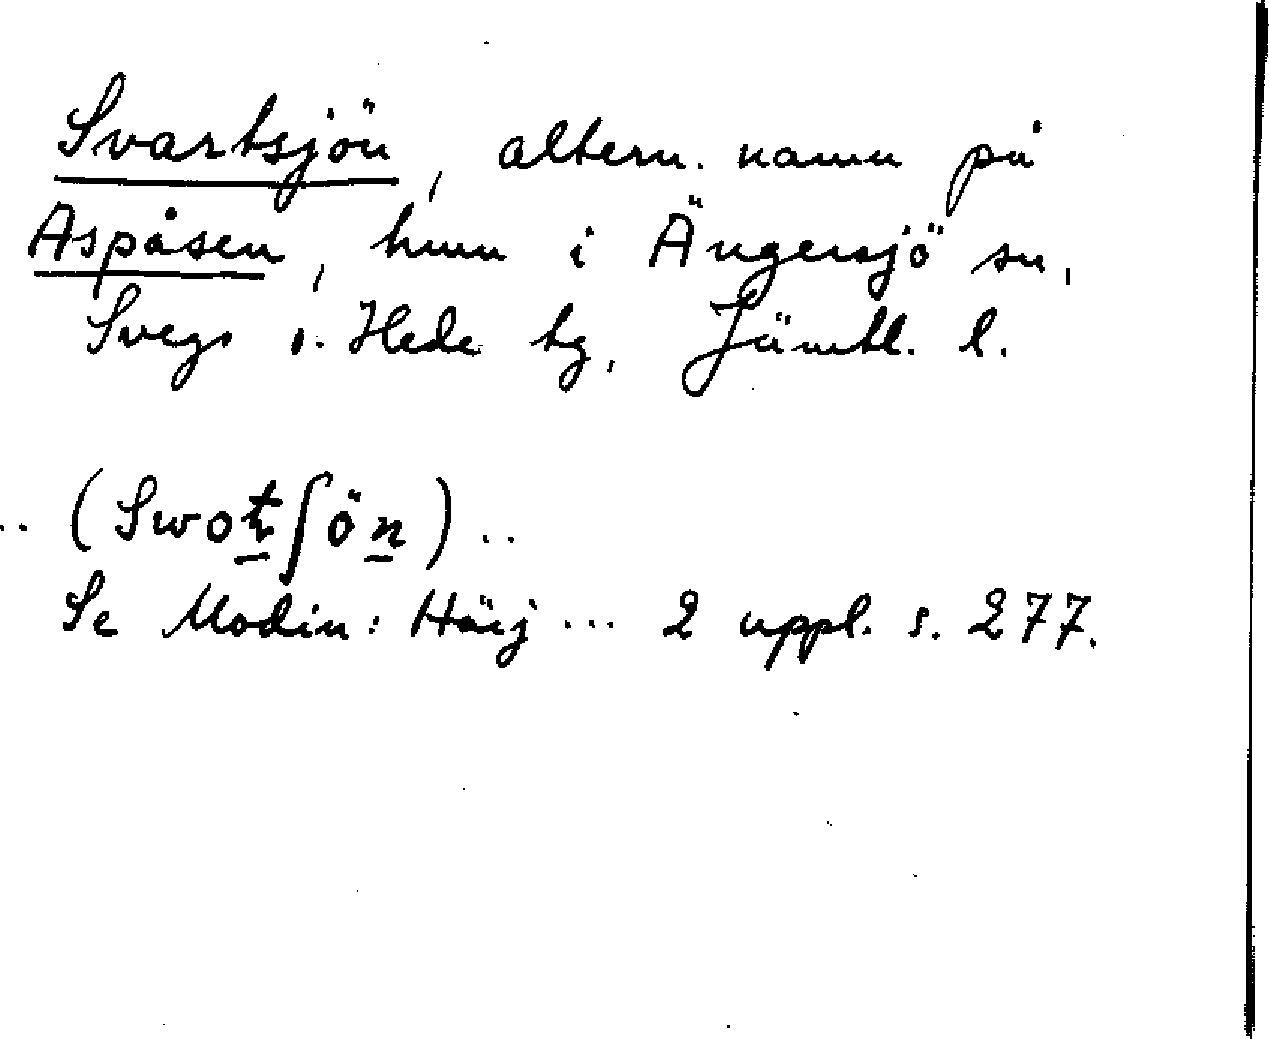 Svartsjön, altern. namn på
Aspåsen, hmn i Ängersjö sn,
Svegs o. Hede tg, Jämtl. l.
.. (Swotʃön) ..
Se Modin: Härj ... 2 uppl. s. 277.